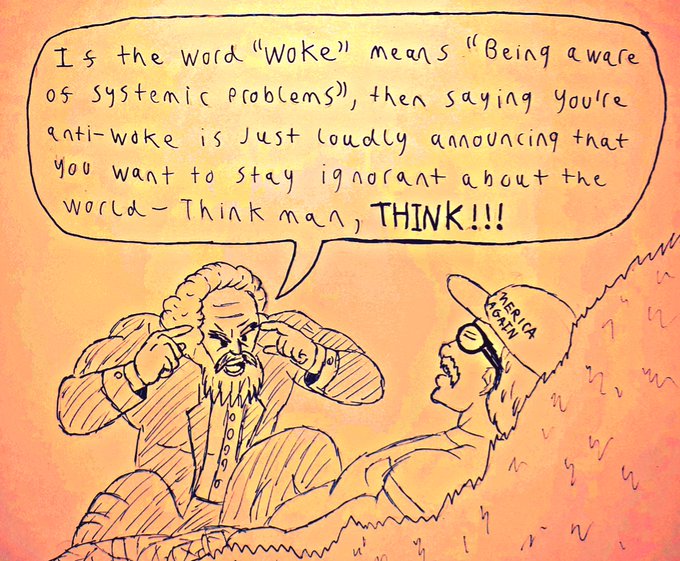 If the word "Woke" means "Being aware
of systemic problems", then saying you're
anti-woke is Just loudly announcing that
you want to stay ignorant about the
world - Think man, THINK!!!
'MERICA
AGAIN